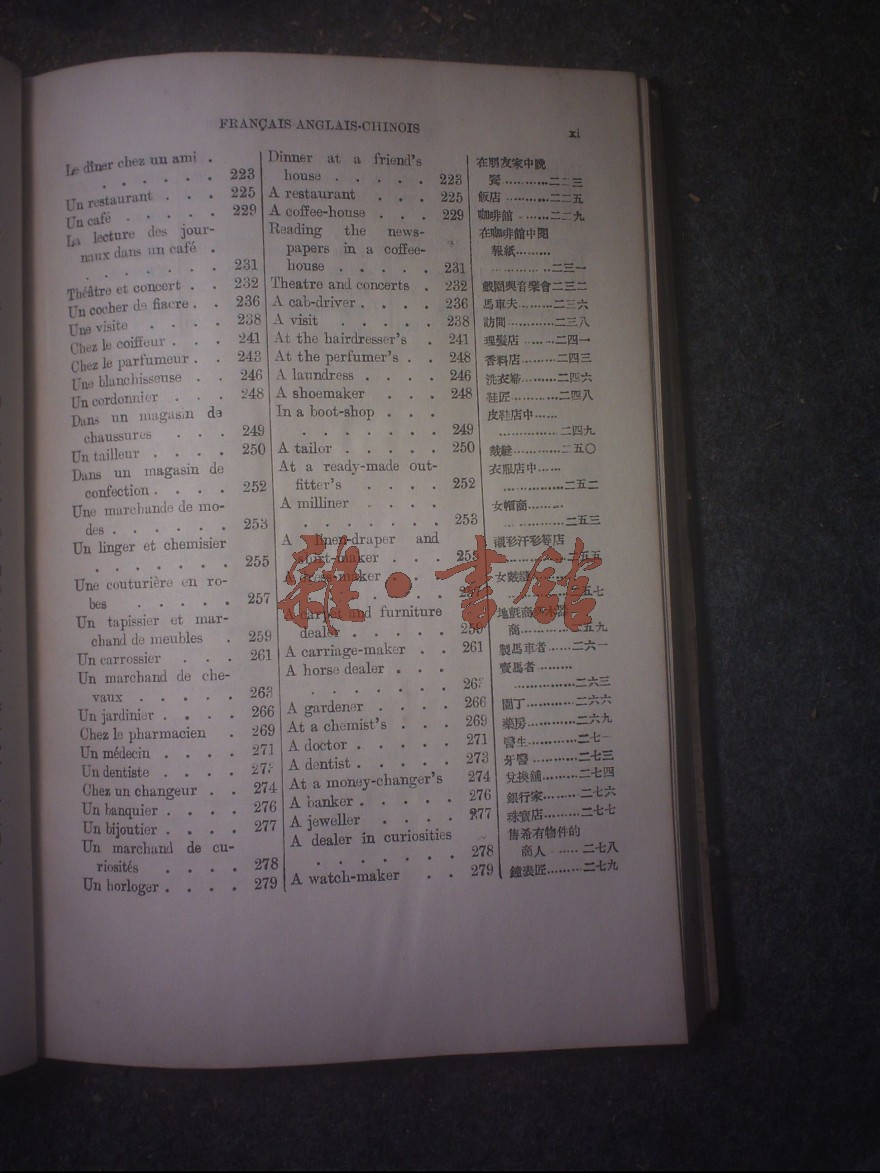 FRANÇAIS ANGLAIS-CHINOIS
xi
Le dîner chez un ami .
. . . . . . 223
Un restaurant . . . 225
Un café . . . . . 229
La lecture des jour-
naux dans un café .
. . . . . . . 231
Théâtre et concert . . 232
Un cocher de fiacre . . 236
Une visite . . . . 238
Chez le coiffeur . . . 241
Chez le parfumeur . . 243
Une blanchisseuse . . 246
Un cordonnier . . . 248
Dans un magasin de
chaussures . . . 249
Un tailleur . . . . 250
Dans un magasin de
confection . . . . 252
Une marchande de mo-
des . . . . . . 253
Un linger et chemisier
. . . . . . . 255
Une couturière en ro-
bes . . . . . 257
Un tapissier et mar-
chand de meubles . 259
Un carrossier . . . 261
Un marchand de che-
vaux . . . . . 263
Un jardinier . . . . 266
Chez le pharmacien . 269
Un médecin . . . . 271
Un dentiste . . . . 273
Chez un changeur . . 274
Un banquier . . . . 276
Un bijoutier . . . . 277
Un marchand de cu-
riosités . . . . 278
Un horloger . . . . 279
Dinner at a friend's
house . . . . . 223
A restaurant . . . 225
A coffee-house . . . 229
Reading the news-
papers in a coffee-
house . . . . . 231
Theatre and concerts . 232
A cab-driver . . . . 236
A visit . . . . . 238
At the hairdresser's . 241
At the perfumer's . . 248
A laundress . . . . 246
A shoemaker . . . 248
In a boot-shop . . .
. . . . . . . 249
A tailor . . . . . 250
At a ready-made out-
fitter's . . . . 252
A milliner . . . .
. . . . . . . 253
A linen-draper and
shirt-maker . . . 258
A dress-maker . . .
. . . . . . . 257
A carpet and furniture
dealer . . . . . 259
A carriage-maker . . 261
A horse dealer . . .
. . . . . . . 263
A gardener . . . . 266
At a chemist's . . . 269
A doctor . . . . . 271
A dentist . . . . . 273
At a money-changer's 274
A banker . . . . . 276
A jeweller . . . . 277
A dealer in curiosities
. . . . . . . 278
A watch-maker . . 279
在朋友家中晚
餐...........二二三
飯店.........二二五
咖啡館.......二二九
在咖啡館中閱
報紙.........
.............二三一
戲園與音樂會二三二
馬車夫.........二三六
訪問............二三八
理髮店.........二四一
香料店.........二四三
洗衣婦.........二四六
鞋匠............二四八
皮鞋店中......
...............二四九
裁縫............二五〇
衣服店中......
...............二五二
女帽商.........
...............二五三
襯衫汗衫等店
............二五五
女裁縫.........
............二五七
地氈商及木器
商............二五九
製馬車者......二六一
賣馬者.........
...............二六三
園丁............二六六
藥房............二六九
醫生............二七一
牙醫............二七三
兌換舖.........二七四
銀行家.........二七六
珠寶店.........二七七
售希有物件的
商人.........二七八
鐘表匠.........二七九
雜·書館